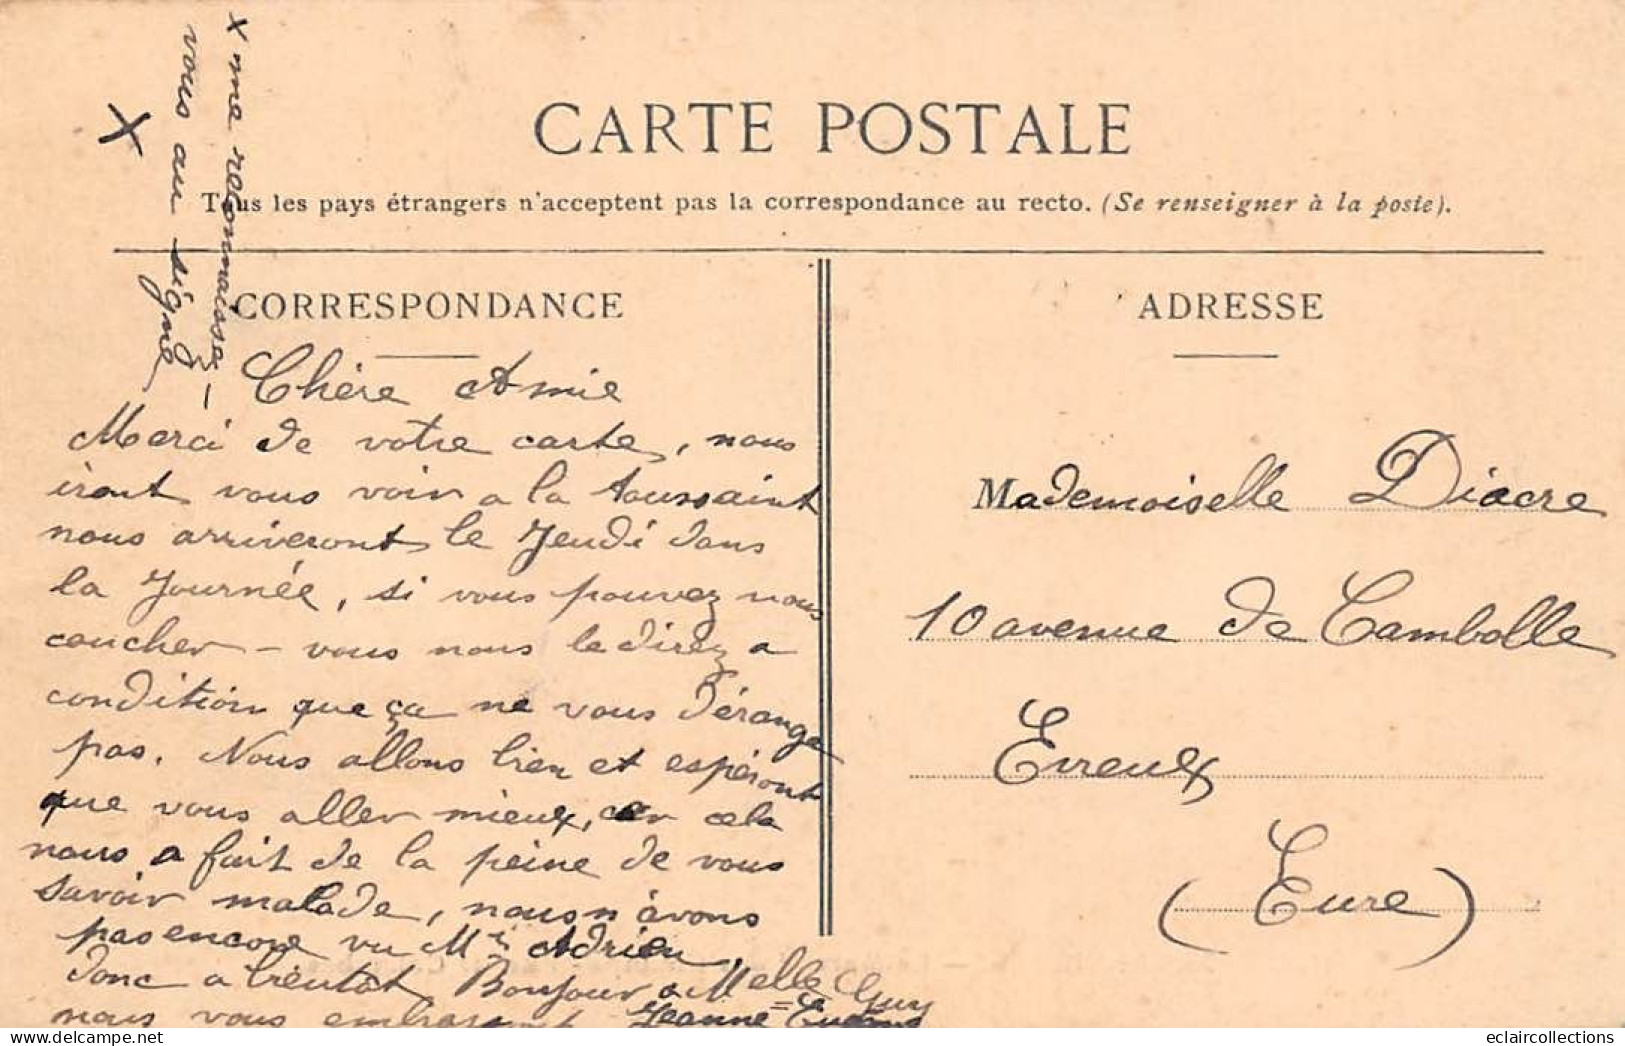 x me reconnaissez-
vous au signe
x
CARTE POSTALE
Tous les pays étrangers n'acceptent pas la correspondance au recto. (Se renseigner à la poste).
CORRESPONDANCE
Chère Amie
Merci de votre carte, nous
iront vous voir a la toussaint
nous arriveront le Jeudi dans
la Journée, si vous pouvez nous
coucher - vous nous le direz a
condition que ça ne vous dérange
pas. Nous allons bien et espéront
que vous aller mieux, car cela
nous a fait de la peine de vous
savoir malade, nous n'avons
pas encore vu Mr Adrien,
donc a bientôt Bonjour a Melle Guy
nous vous embrassont Jeanne =
ADRESSE
Mademoiselle Diacre
10 avenue de Cambolle
Evreux
(Eure)
eclaircollections